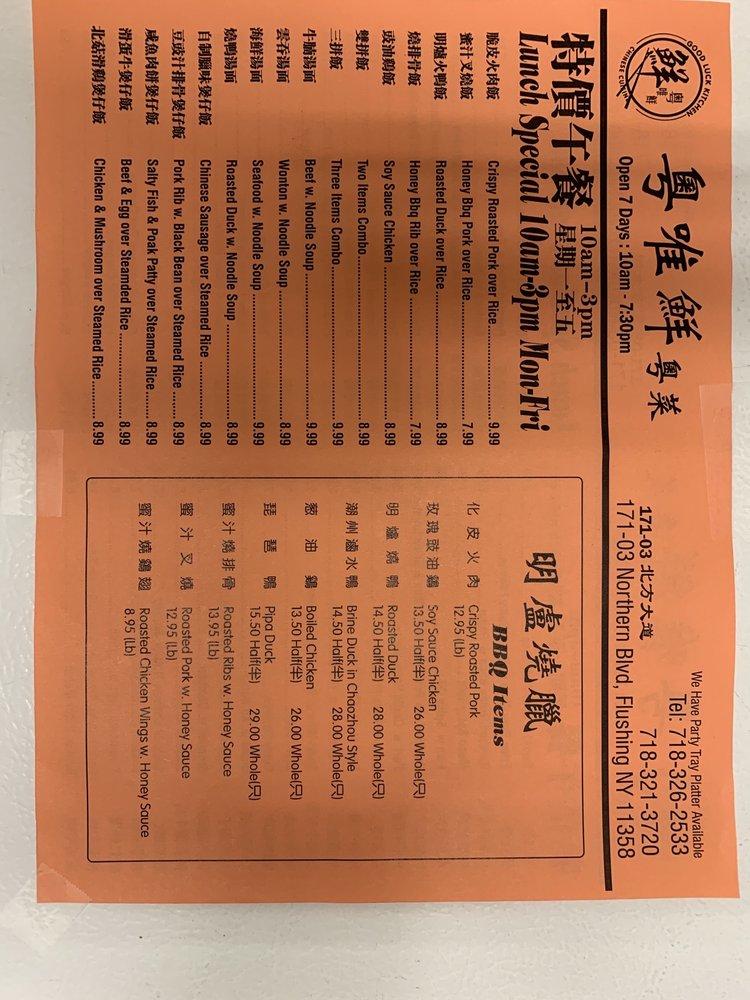 GOOD LUCK KITCHEN
鮮
粵唯鮮
CHINESE CUISINE
粵唯鮮 粵菜
Open 7 Days : 10am - 7:30pm
We Have Party Tray Platter Available
Tel: 718-326-2533
718-321-3720
171-03 北方大道
171-03 Northern Blvd, Flushing NY 11358
特價午餐 10am-3pm 星期一至五
Lunch Special 10am-3pm Mon-Fri
脆皮火肉飯 Crispy Roasted Pork over Rice 9.99
蜜汁叉燒飯 Honey Bbq Pork over Rice 7.99
明爐火鴨飯 Roasted Duck over Rice 8.99
燒排骨飯 Honey Bbq Rib over Rice 7.99
豉油鷄飯 Soy Sauce Chicken 8.99
雙拼飯 Two Items Combo 8.99
三拼飯 Three Items Combo 9.99
牛腩湯面 Beef w. Noodle Soup 9.99
雲吞湯面 Wonton w. Noodle Soup 8.99
海鮮湯面 Seafood w. Noodle Soup 9.99
燒鴨湯面 Roasted Duck w. Noodle Soup 8.99
自制臘味煲仔飯 Chinese Sausage over Steamed Rice 8.99
豆豉汁排骨煲仔飯 Pork Rib w. Black Bean over Steamed Rice 8.99
咸魚肉餅煲仔飯 Salty Fish & Poak Patty over Steamed Rice 8.99
滑蛋牛煲仔飯 Beef & Egg over Steamded Rice 8.99
北菇滑鷄煲仔飯 Chicken & Mushroom over Steamed Rice 8.99
明盧燒臘
BBQ Items
化皮火肉 Crispy Roasted Pork
12.95 (Lb)
玫瑰豉油鷄 Soy Sauce Chicken
13.50 Half(半) 26.00 Whole(只)
明爐燒鴨 Roasted Duck
14.50 Half(半) 28.00 Whole(只)
潮州滷水鴨 Brine Duck in Chaozhou Style
14.50 Half(半) 28.00 Whole(只)
葱油鷄 Boiled Chicken
13.50 Half(半) 26.00 Whole(只)
琵琶鴨 Pipa Duck
15.50 Half(半) 29.00 Whole(只)
蜜汁燒排骨 Roasted Ribs w. Honey Sauce
13.95 (Lb)
蜜汁叉燒 Roasted Pork w. Honey Sauce
12.95 (Lb)
蜜汁燒鷄翅 Roasted Chicken Wings w. Honey Sauce
8.95 (Lb)